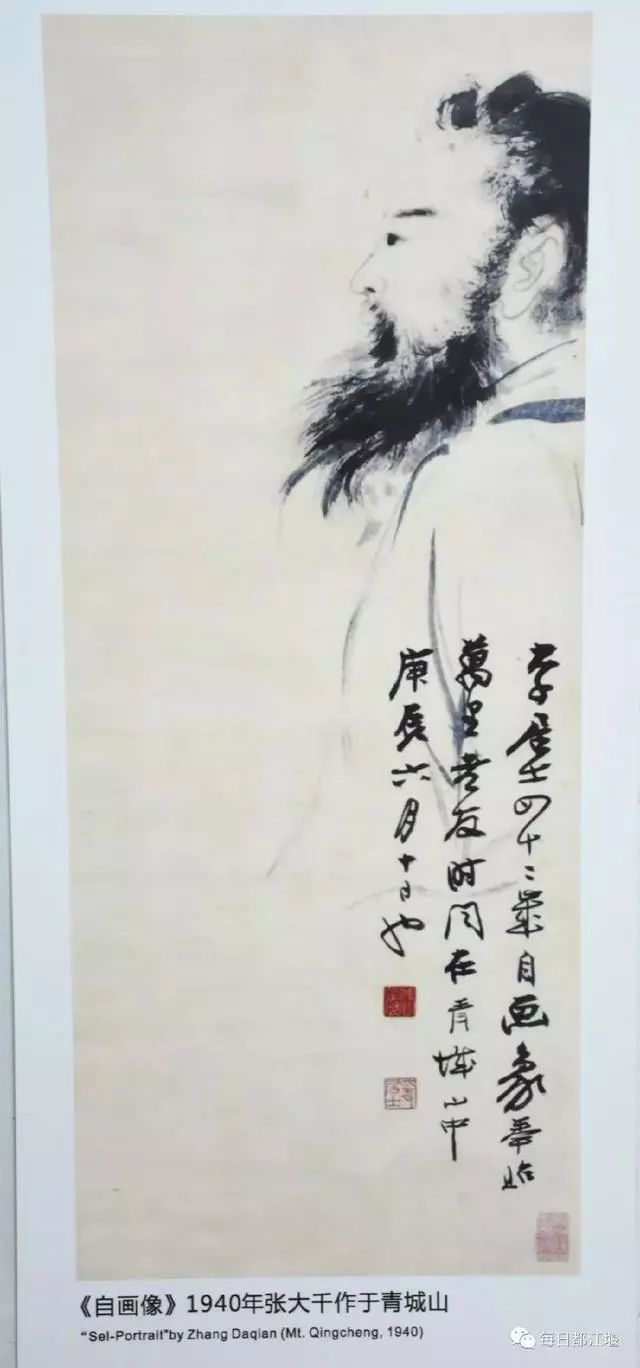 大千居士四十二歲自画象奉貽
萬里老友时同在青城山中
庚辰六月十日也
《自画像》1940年张大千作于青城山
“Sel-Portrait”by Zhang Daqian (Mt. Qingcheng, 1940)
每日都江堰